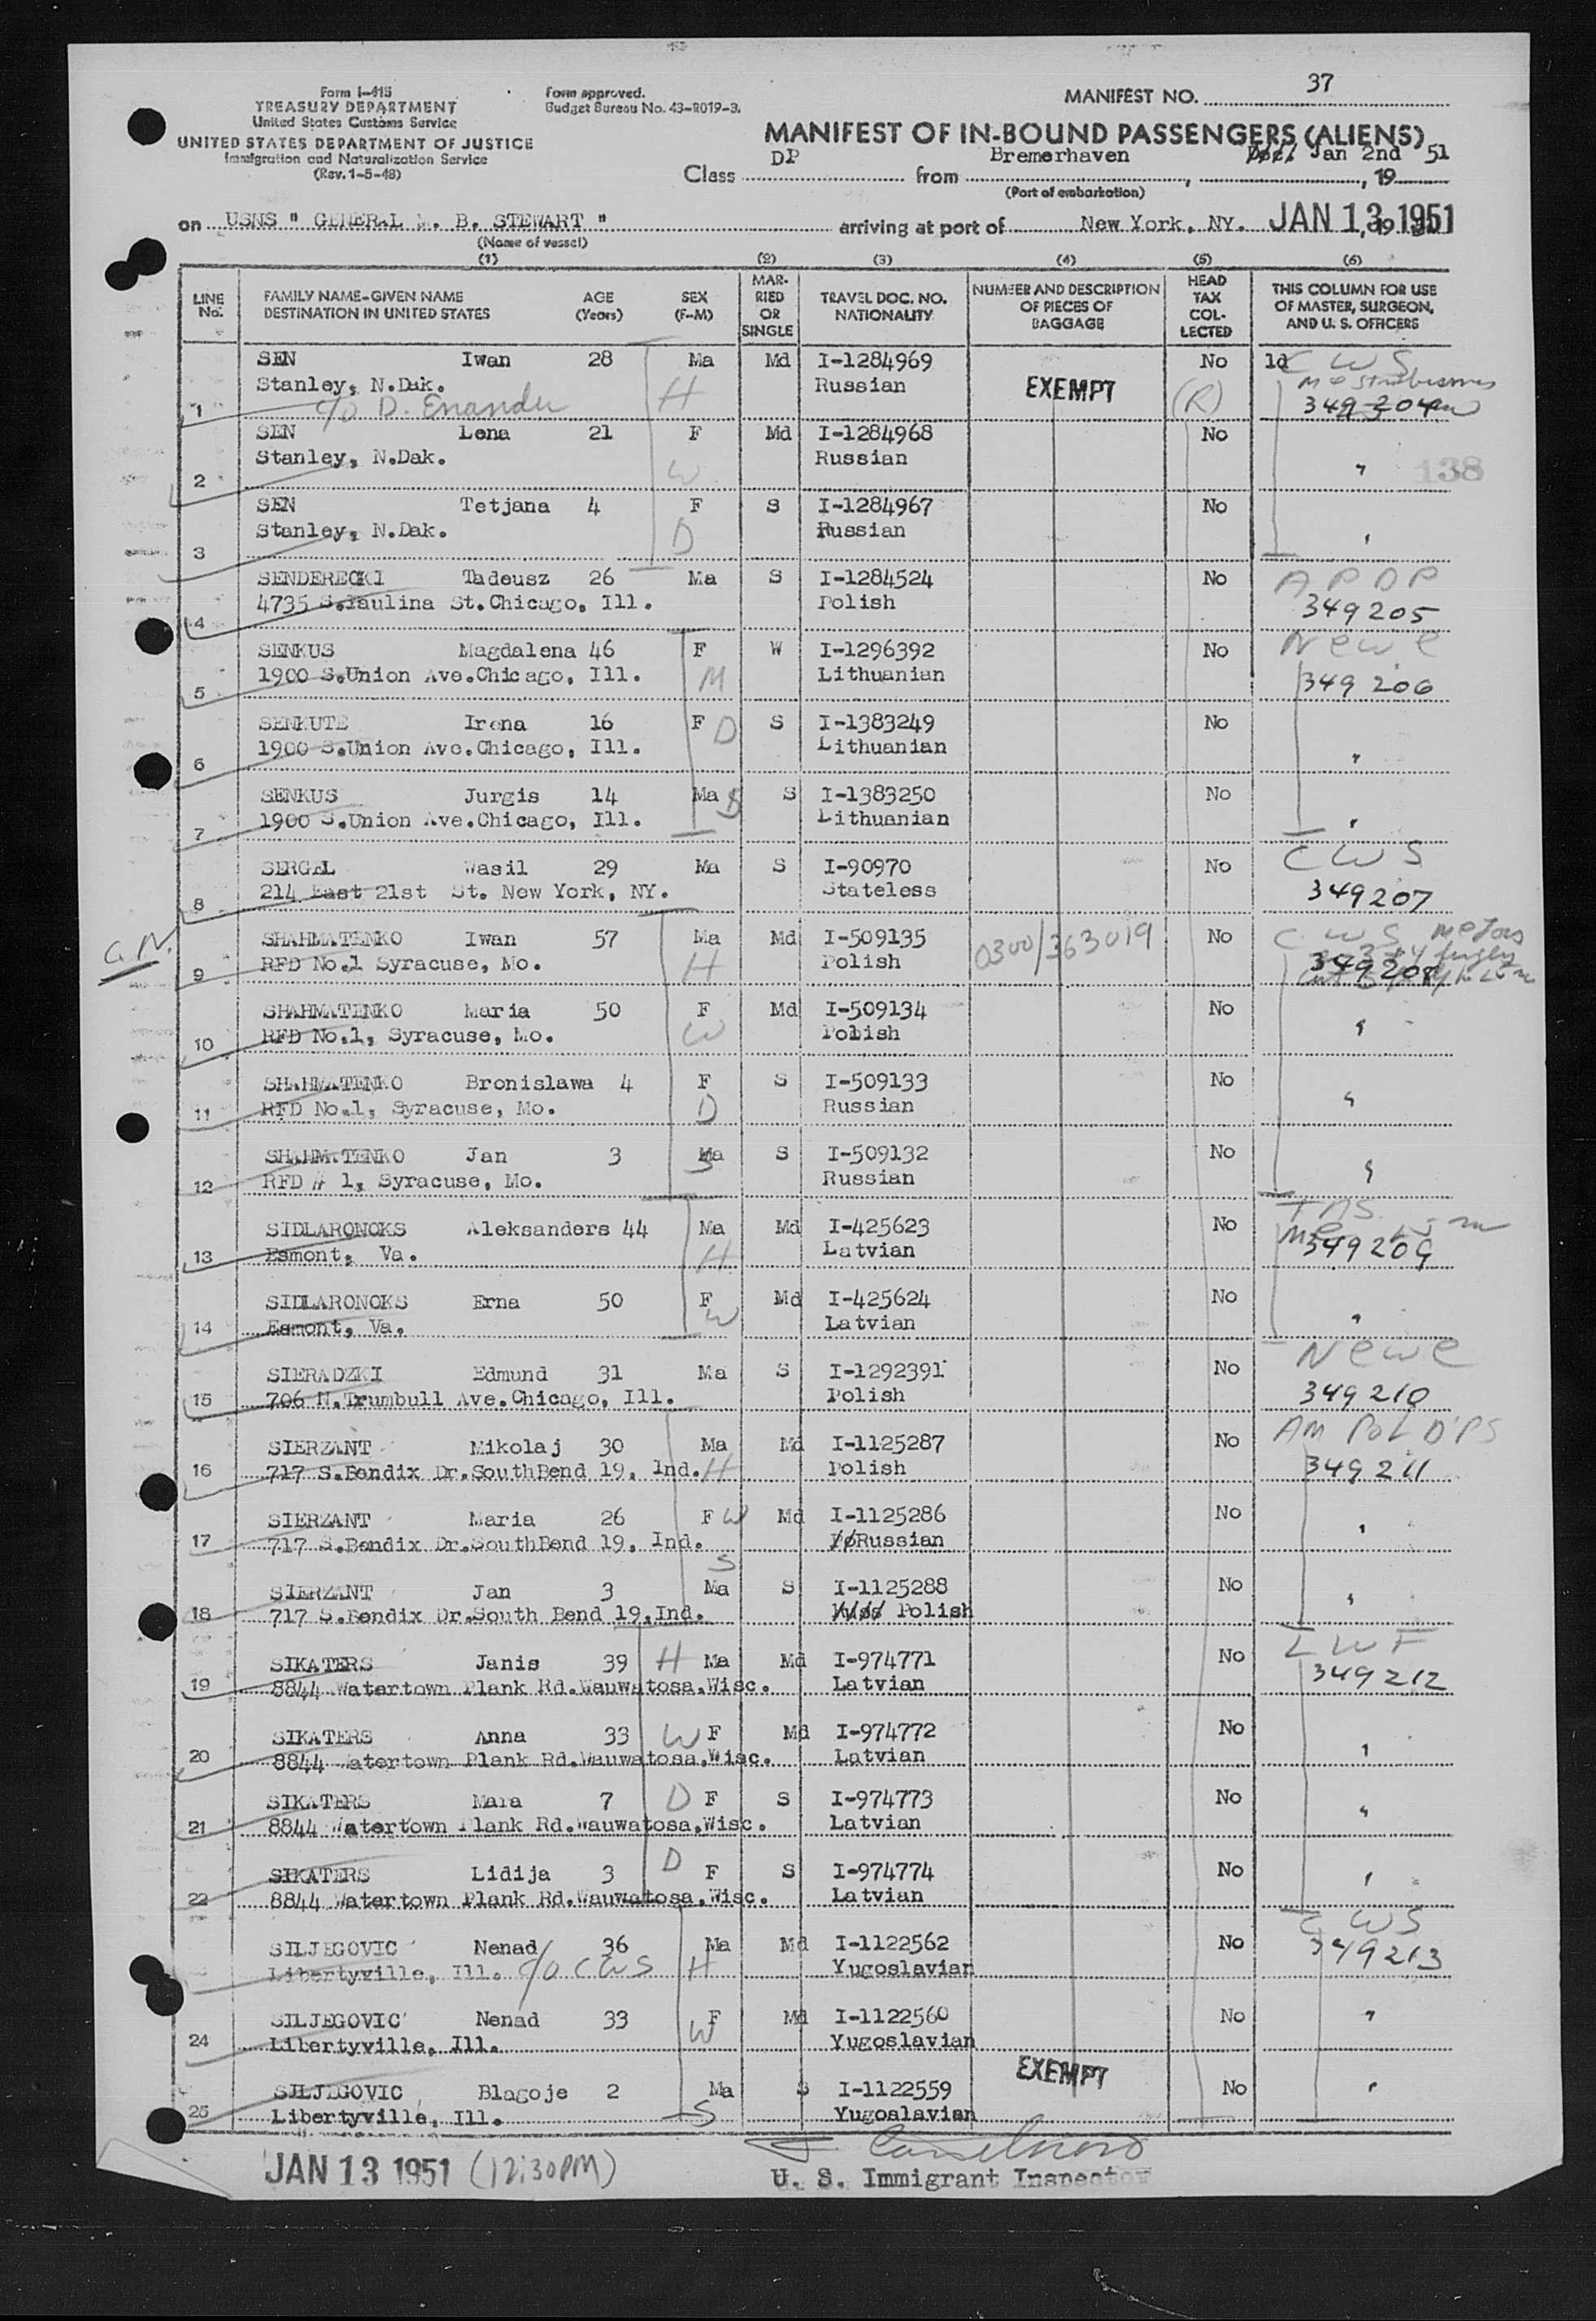 Form I-415
TREASURY DEPARTMENT
United States Customs Service
UNITED STATES DEPARTMENT OF JUSTICE
Immigration and Naturalization Service
(Rev. 1-5-48)
Form approved.
Budget Bureau No. 43-R019-3.
MANIFEST NO. 37
MANIFEST OF IN-BOUND PASSENGERS (ALIENS)
Class DP from Bremerhaven, Jan 2nd, 19 51
(Port of embarkation)
on USNS " GENERAL M. B. STEWART " arriving at port of New York, NY. JAN 13 1951
(Name of vessel)
(1) (2) (3) (4) (5) (6)
LINE No. FAMILY NAME-GIVEN NAME DESTINATION IN UNITED STATES AGE (Years) SEX (F-M) MARRIED OR SINGLE TRAVEL DOC. NO. NATIONALITY NUMBER AND DESCRIPTION OF PIECES OF BAGGAGE HEAD TAX COLLECTED THIS COLUMN FOR USE OF MASTER, SURGEON, AND U. S. OFFICERS
SEN Iwan 28 Ma Md I-1284969 No 1d CWS
Stanley, N.Dak. H Russian EXEMPT (R)
1 c/o D. Enander 349204
SEN Lena 21 F Md I-1284968 No
Stanley, N.Dak. W Russian 138
2
SEN Tetjana 4 F S I-1284967 No
Stanley, N.Dak. D Russian
3
SENDERECKI Tadeusz 26 Ma S I-1284524 No APDP
4 4735 S.Paulina St.Chicago, Ill. Polish 349205
SENKUS Magdalena 46 F W I-1296392 No Newe
5 1900 S.Union Ave.Chicago, Ill. M Lithuanian 349206
SENKUTE Irena 16 F D S I-1383249 No
6 1900 S.Union Ave.Chicago, Ill. Lithuanian
SENKUS Jurgis 14 Ma S S I-1383250 No
7 1900 S.Union Ave.Chicago, Ill. Lithuanian
SERGEL Wasil 29 Ma S I-90970 No CWS
8 214 East 21st St. New York, NY. Stateless 349207
G.N. SHAHMATENKO Iwan 57 Ma Md I-509135 0300/363019 No CWS
9 RFD No.1 Syracuse, Mo. H Polish 349208
SHAHMATENKO Maria 50 F Md I-509134 No
10 RFD No.1, Syracuse, Mo. W Polish
SHAHMATENKO Bronislawa 4 F S I-509133 No
11 RFD No.1, Syracuse, Mo. D Russian
SHAHMATENKO Jan 3 Ma S I-509132 No
12 RFD # 1, Syracuse, Mo. S Russian
SIDLARONOKS Aleksanders 44 Ma Md I-425623 No
13 Esmont, Va. H Latvian 349209
SIDLARONOKS Erna 50 F Md I-425624 No
14 Esmont, Va. W Latvian
SIERADZKI Edmund 31 Ma S I-1292391 No Newe
15 706 N.Trumbull Ave.Chicago, Ill. Polish 349210
SIERZANT Mikolaj 30 Ma Md I-1125287 No AM Pol DPS
16 717 S.Bendix Dr.SouthBend 19, Ind. H Polish 349211
SIERZANT Maria 26 F W Md I-1125286 No
17 717 S.Bendix Dr.SouthBend 19, Ind. Russian
SIERZANT Jan 3 S Ma S I-1125288 No
18 717 S.Bendix Dr.South Bend 19,Ind. Polish
SIKATERS Janis 39 H Ma Md I-974771 No LWF
19 8844 Watertown Plank Rd.Wauwatosa,Wisc. Latvian 349212
SIKATERS Anna 33 W F Md I-974772 No
20 8844 Watertown Plank Rd.Wauwatosa,Wisc. Latvian
SIKATERS Mara 7 D F S I-974773 No
21 8844 Watertown Plank Rd.Wauwatosa,Wisc. Latvian
SIKATERS Lidija 3 D F S I-974774 No
22 8844 Watertown Plank Rd.Wauwatosa,Wisc. Latvian
SILJEGOVIC Nenad 36 Ma Md I-1122562 No CWS
Libertyville, Ill. c/o CWS H Yugoslavian 349213
SILJEGOVIC Nenad 33 F Md I-1122560 No
24 Libertyville, Ill. W Yugoslavian
SILJEGOVIC Blagoje 2 Ma S I-1122559 EXEMPT No
25 Libertyville, Ill. S Yugoslavian
JAN 13 1951 (12:30PM)
U. S. Immigrant Inspector